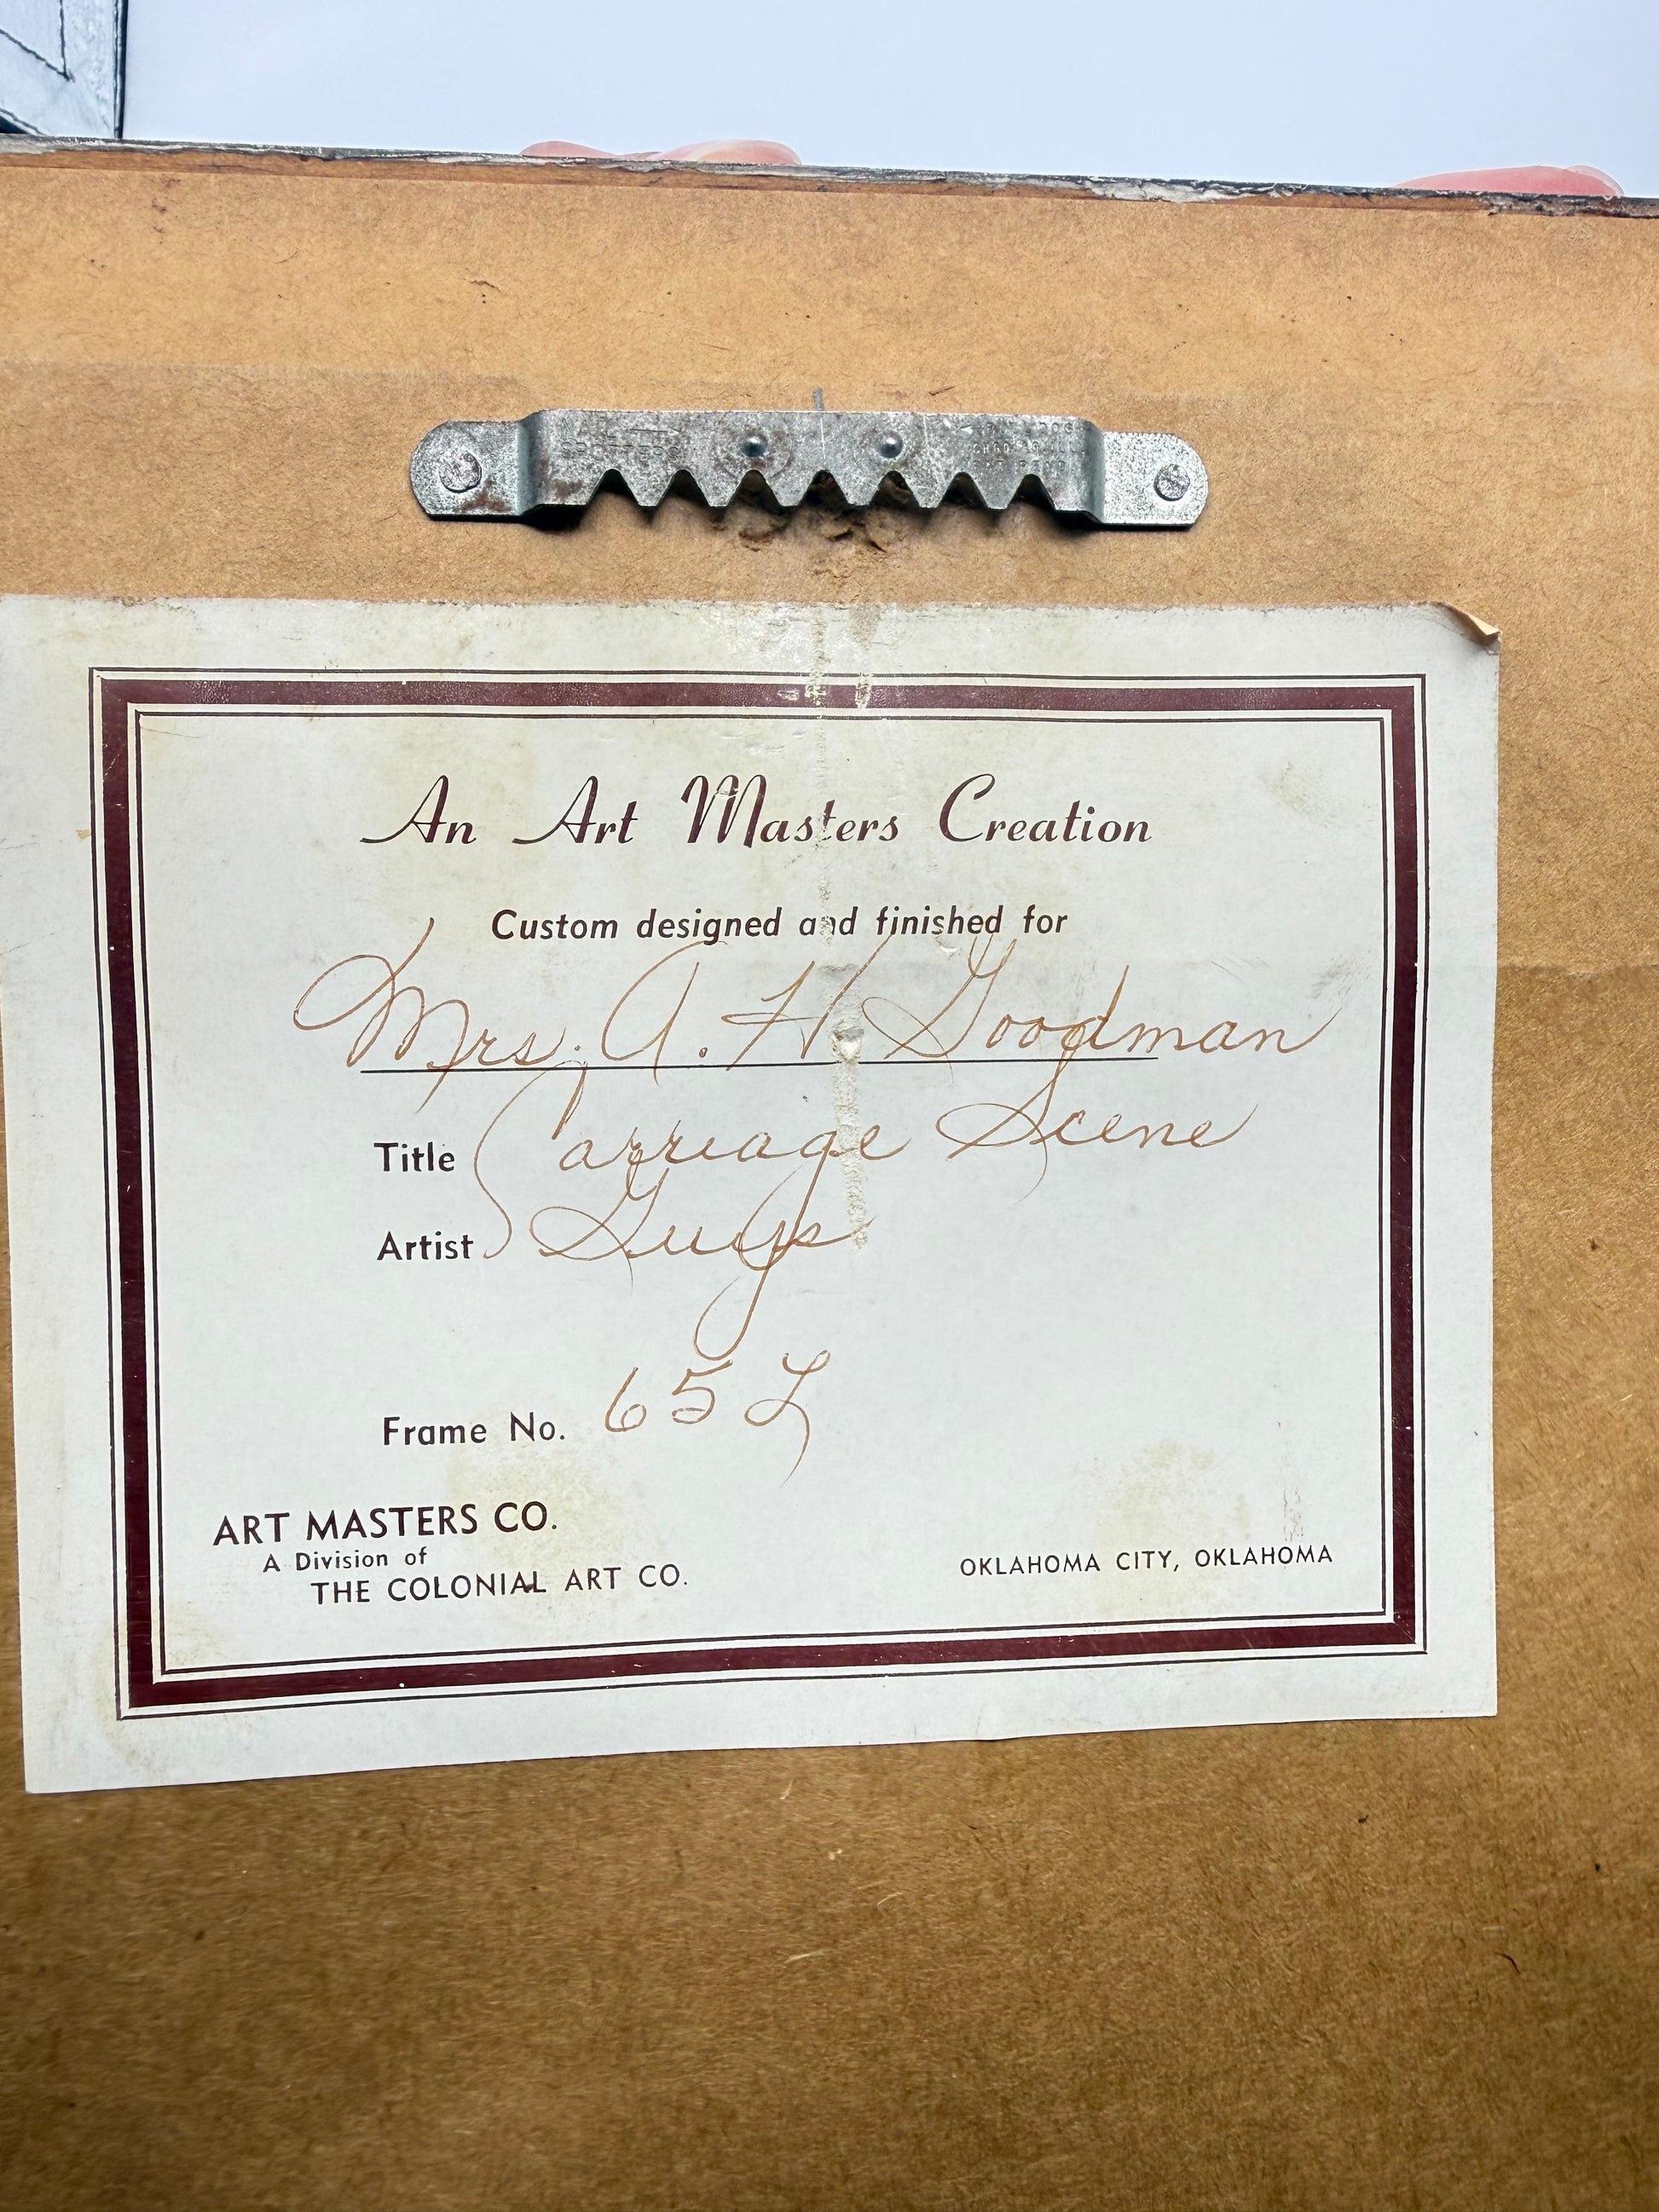 An Art Masters Creation
Custom designed and finished for
Mrs. A. H Goodman
Title Carriage Scene
Artist Guys
Frame No. 65 L
ART MASTERS CO.
A Division of
THE COLONIAL ART CO.
OKLAHOMA CITY, OKLAHOMA